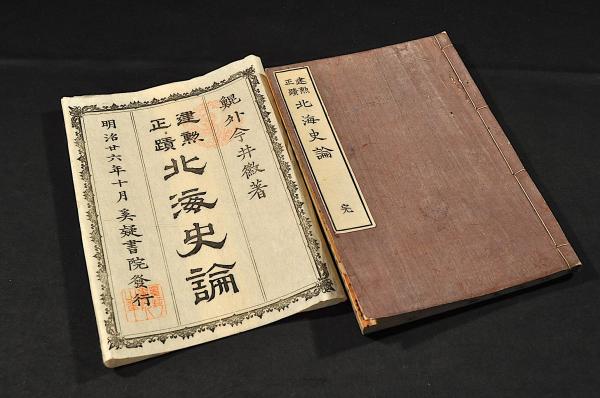 鯤外今井徹著
建勲
正蹟
北海史論
明治廿六年十月 奚疑書院發行
建勲
正蹟
北海史論
完